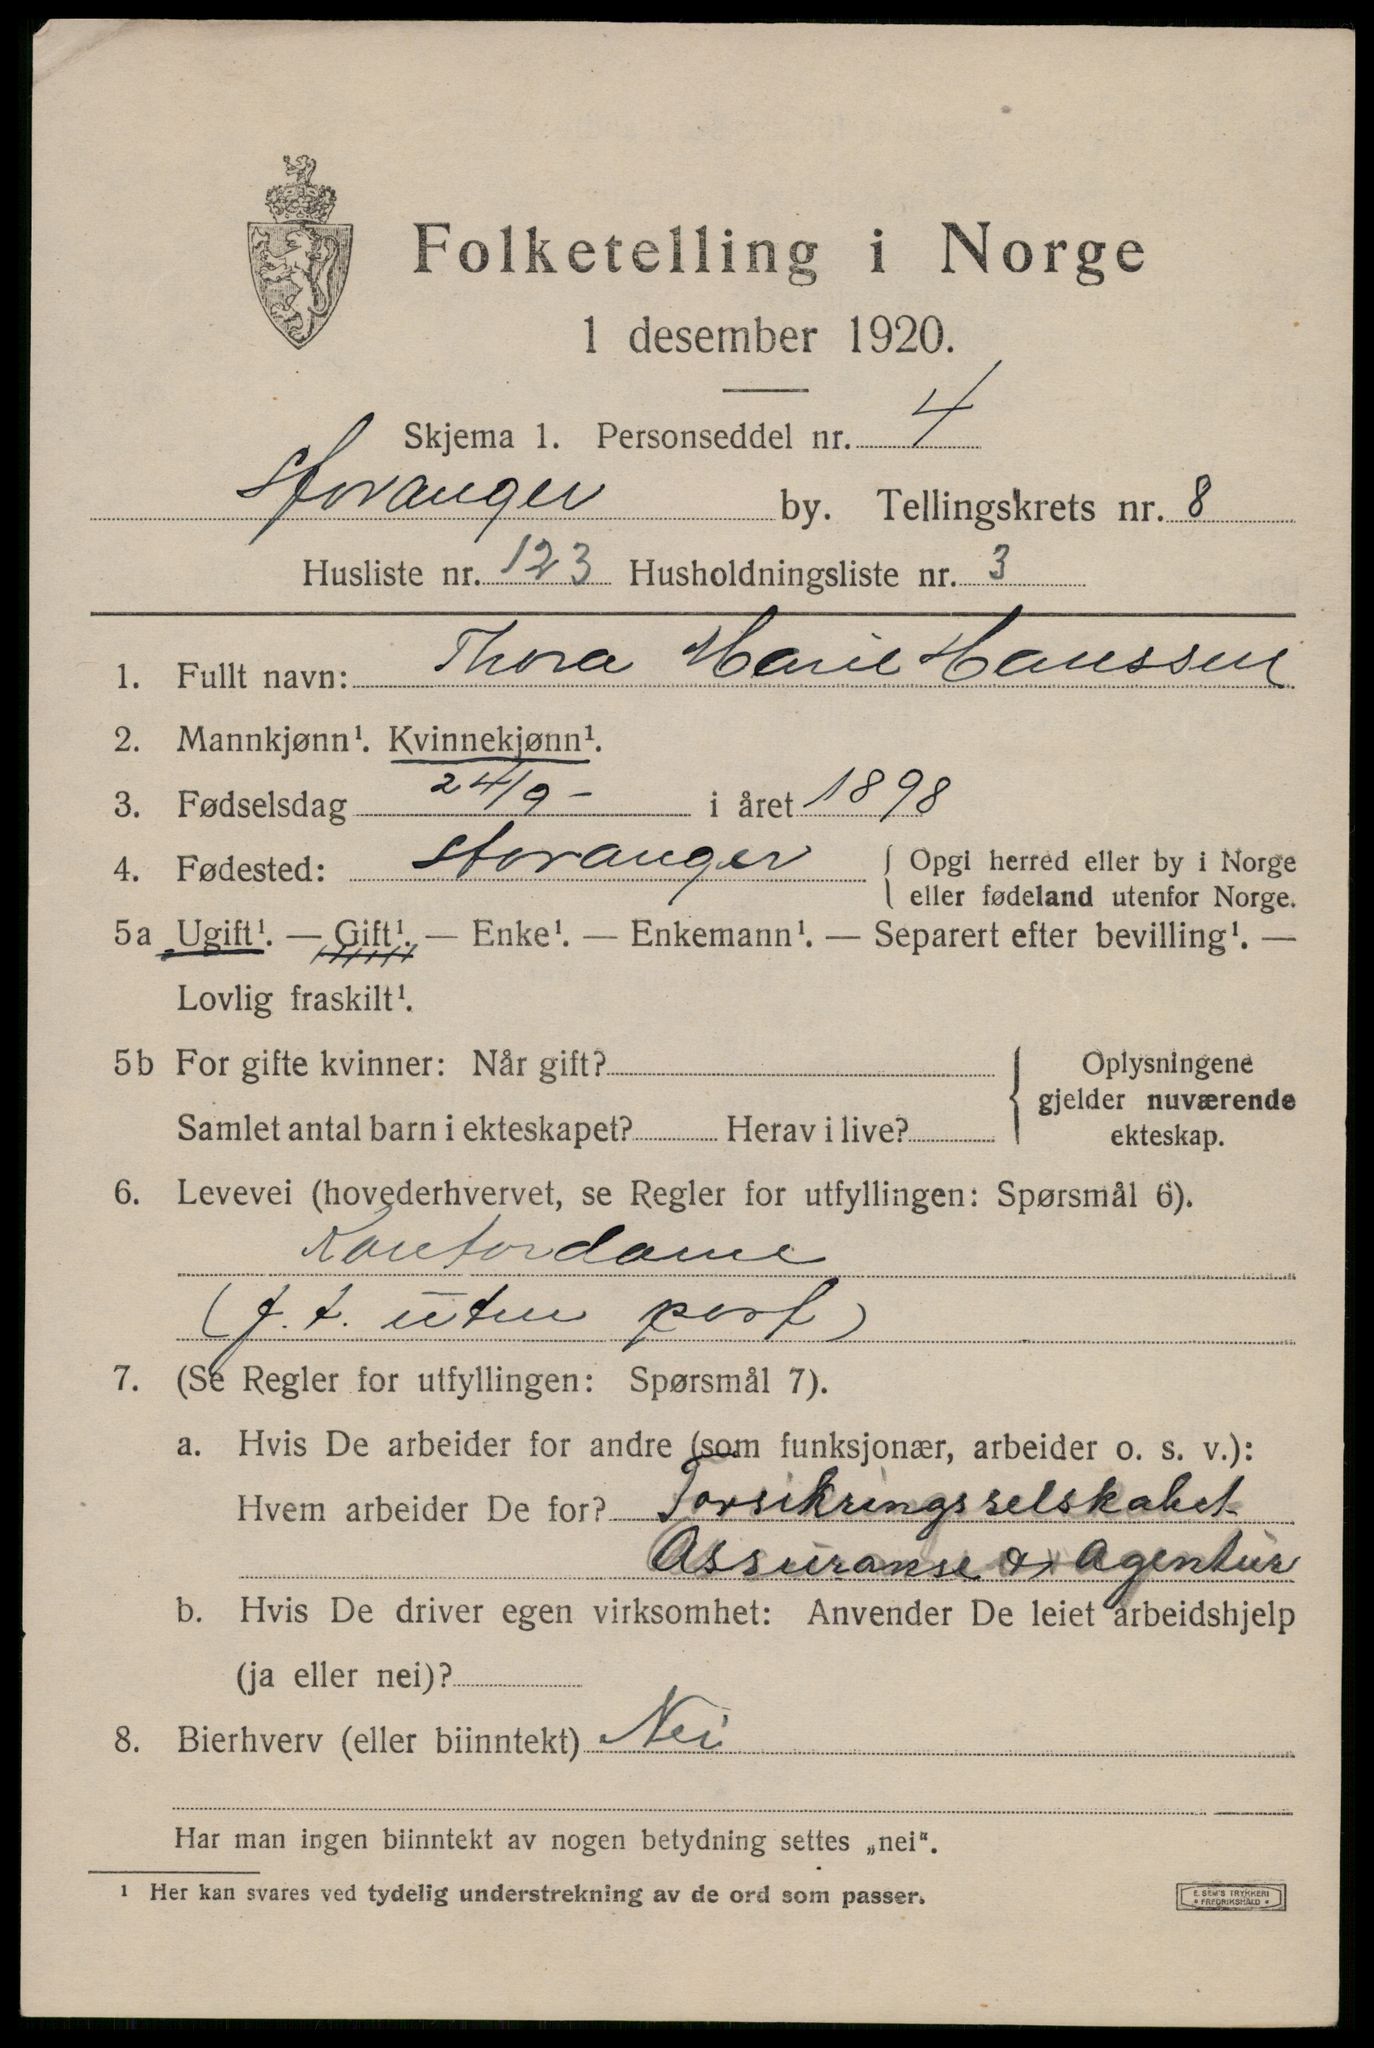 Folketelling i Norge
1 desember 1920.
Skjema 1. Personseddel nr. 4
Stavanger by. Tellingskrets nr. 8
Husliste nr. 123 Husholdningsliste nr. 3
1. Fullt navn: Thora Marie Hanssen
2. Mannkjønn¹. Kvinnekjønn¹.
3. Fødselsdag 24/9- i året 1898
4. Fødested: Stavanger { Opgi herred eller by i Norge
eller fødeland utenfor Norge.
5a Ugift¹. — Gift¹. — Enke¹. — Enkemann¹. — Separert efter bevilling¹. —
Lovlig fraskilt¹.
5b For gifte kvinner: Når gift? { Oplysningene
gjelder nuværende
Samlet antal barn i ekteskapet? Herav i live? ekteskap.
6. Levevei (hovederhvervet, se Regler for utfyllingen: Spørsmål 6).
Kontordame
(f. t. uten post)
7. (Se Regler for utfyllingen: Spørsmål 7).
a. Hvis De arbeider for andre (som funksjonær, arbeider o. s. v.):
Hvem arbeider De for? Forsikringsselskabet
Assuranse & Agentur
b. Hvis De driver egen virksomhet: Anvender De leiet arbeidshjelp
(ja eller nei)?
8. Bierhverv (eller biinntekt) Nei
Har man ingen biinntekt av nogen betydning settes „nei“.
¹ Her kan svares ved tydelig understrekning av de ord som passer.
E. SEM'S TRYKKERI
* FREDRIKSHALD *